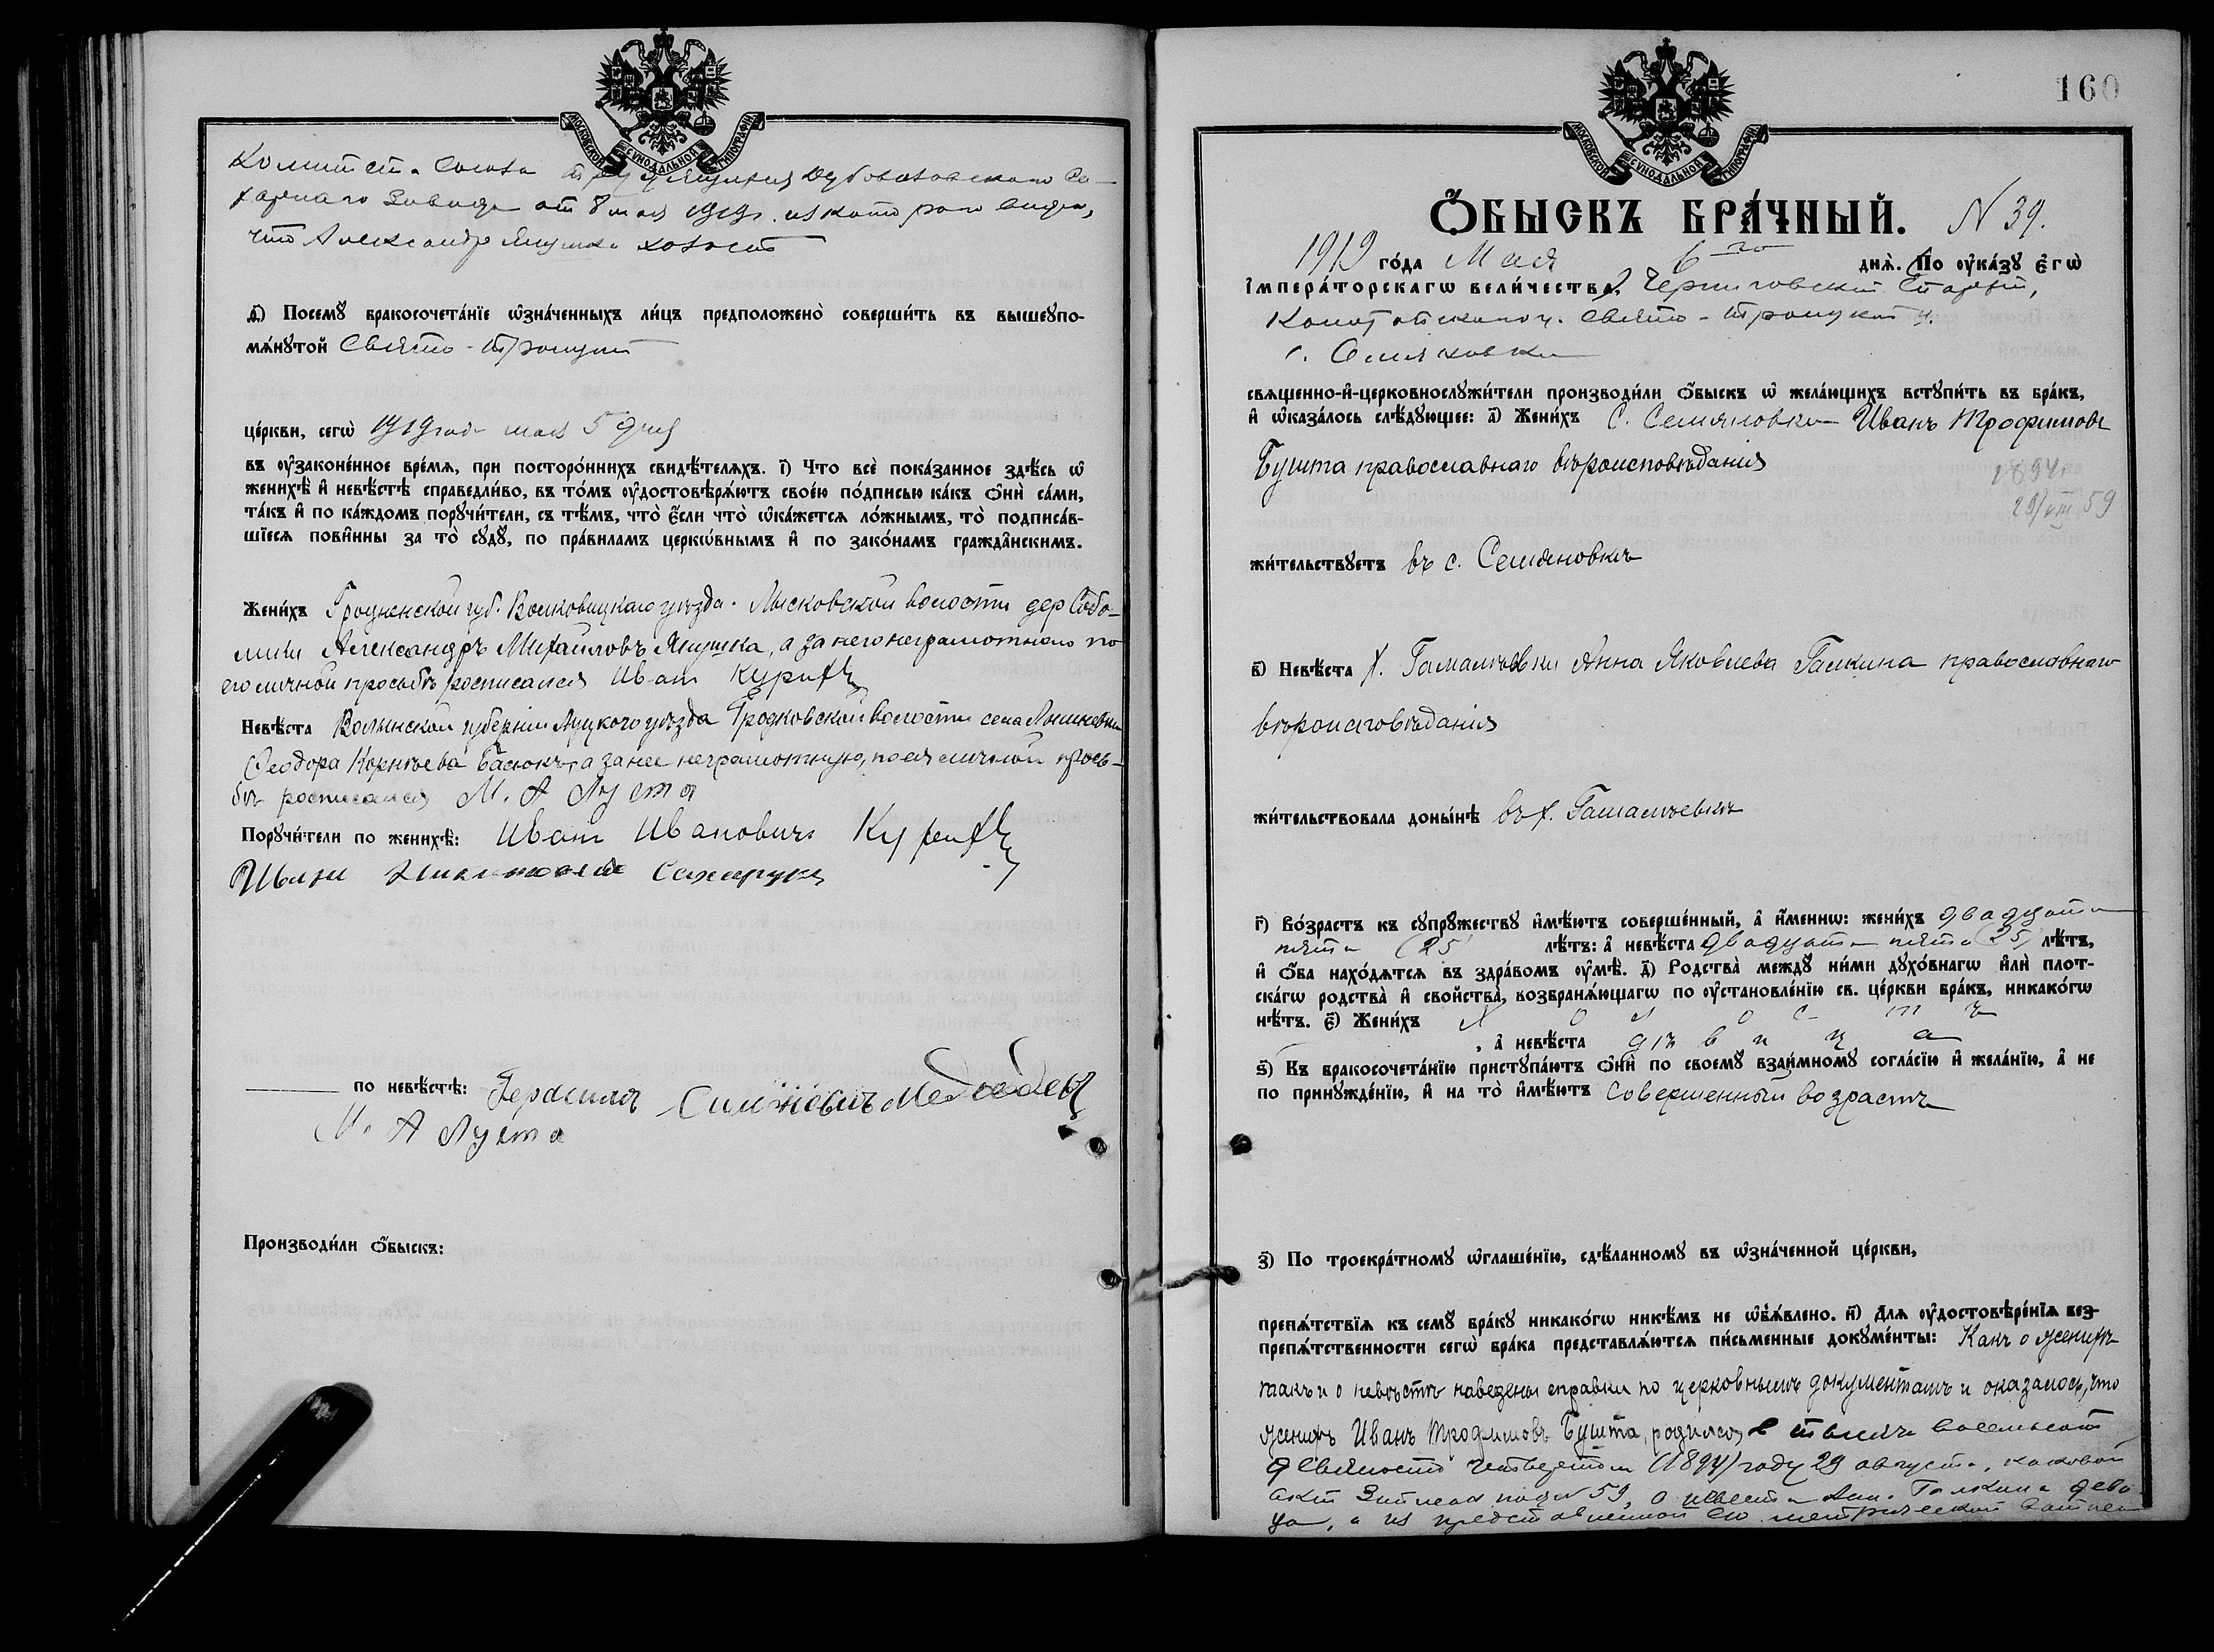 МОСКОВСКОЙ СУНОДАЛЬНОЙ ТИПОГРАФІИ
Комитета Союза трудящихся Дубовязовскаго Са-
харнаго Завода от 8 мая 1919г. из котораго видно,
что Александр Янушка холост
д҃) Посемꙋ̀ бракосочета́нїе ѡ҆зна́ченныхъ ли́цъ предположено̀ соверши́ть въ вышеꙋпо-
мѧ́нꙋтой Свято-Троицкой
це́ркви, сегѡ̀ 1919 года мая 5 дня
въ ᲂу҆зако́ненное вре́мѧ, при посторо́ннихъ свидѣ́телѧхъ. і҃) Что всѐ пока́занное здѣ́сь ѡ҆
женихѣ̀ и҆ невѣ́стѣ справедли́во, въ то́мъ ᲂу҆достовѣрѧ́ютъ свое́ю по́дписью ка́къ ѻ҆нѝ са́ми,
та́къ и҆ по ка́ждомъ порꙋчи́тели, съ тѣ́мъ, что̀ є҆́сли что̀ ѡ҆ка́жетсѧ ло́жнымъ, то̀ подписа́в-
шїесѧ пови́нны за то̀ сꙋдꙋ̀, по пра́виламъ церкѡ́внымъ и҆ по зако́намъ гражда́нскимъ.
Жени́хъ Гродненской губ. Волковицкаго уѣзда. Лысковской волости дер Собо-
лики Александръ Михаиловъ Янушка, а за него неграмотнаго по
его личной просьбѣ росписался Иван
Невѣ́ста Волынской губерніи Луцкого уѣзда Гродковской волости села
Ѳеодора Корнѣева Басюкъ, а за нее неграмотную, по ея личной прось-
бѣ росписался М. А Луста
Порꙋчи́тели по женихѣ̀: Иван Иванович
Сахарукъ
по невѣ́стѣ: Герасимъ Симоновичъ
М. А Луста
Производи́ли ѻ҆́быскъ:
160
МОСКОВСКОЙ СУНОДАЛЬНОЙ ТИПОГРАФІИ
Ѻ҆́БЫСКЪ БРА́ЧНЫЙ. N 39.
1919 го́да Мая 6го днѧ̀. По ᲂу҆ка́зꙋ є҆гѡ̀
і҆мпера́торскагѡ вели́чества, Черниговской Епархіи,
Конотопскаго у. Свято-Троицкой ц.
с. Семяновки
свѧщенно-и҆-церковнослꙋжи́тели производи́ли ѻ҆́быскъ ѡ҆ жела́ющихъ встꙋпи́ть въ бра́къ,
и҆ ѡ҆каза́лось слѣ́дꙋющее: а҃) Жени́хъ С. Семяновки Иванъ Трофимовъ
Бушта православнаго вѣроисповѣданія
1894г
29/VIII 59
жи́тельствꙋетъ въ с. Семяновкѣ
в҃) Невѣ́ста х. Гамалѣевки Анна Яковлева Галкина православнаго
вѣроисповѣданія
жи́тельствовала доны́нѣ въ х. Гамалѣевкѣ
г҃) Во́зрастъ къ сꙋпрꙋ́жествꙋ и҆мѣ́ютъ соверше́нный, а҆ и҆́меннѡ: жени́хъ двадцати
пяти (25) лѣ́тъ: а҆ невѣ́ста двадцати пяти (25) лѣ́тъ,
и҆ ѻ҆́ба нахо́дѧтсѧ въ здра́вомъ ᲂу҆мѣ̀. д҃) Родства̀ междꙋ̀ ни́ми дꙋхо́внагѡ и҆лѝ плот-
ска́гѡ родства̀ и҆ сво́йства̀, возбранѧ́ющагѡ по ᲂу҆становле́нїю св. це́ркви бра́къ, никако́гѡ
нѣ́тъ. є҃) Жени́хъ холостъ
, а҆ невѣ́ста дѣвица
ѕ҃) Къ бракосочета́нїю пристꙋпа́ютъ ѻ҆нѝ по своемꙋ̀ взаи́мномꙋ согла́сїю и҆ жела́нїю, а҆ не
по принꙋжде́нїю, и҆ на то̀ и҆мѣ́ютъ совершенный возрастъ
з҃) По троекра́тномꙋ ѡ҆глаше́нїю, сдѣ́ланномꙋ въ ѡ҆зна́ченной це́ркви,
препѧ́тствїѧ къ семꙋ̀ бра́кꙋ никако́гѡ никѣ́мъ не ѡ҆б̾ѧ́влено. и҃) Длѧ ᲂу҆достовѣре́нїѧ без-
препѧ́тственности сегѡ̀ бра́ка представлѧ́ютсѧ пи́сьменные докꙋме́нты: Какъ о женихѣ
такъ и о невѣстѣ наведены справки по церковнымъ документамъ и оказалось, что
женихъ Иванъ Трофимовъ Бушта, родился в тысяча восемьсот
девяносто четвертом (1894) году 29 августа, каковой
акт записан под N 59, а невеста Анна Галкина деви
ца, а из представленной ею метрической выписи